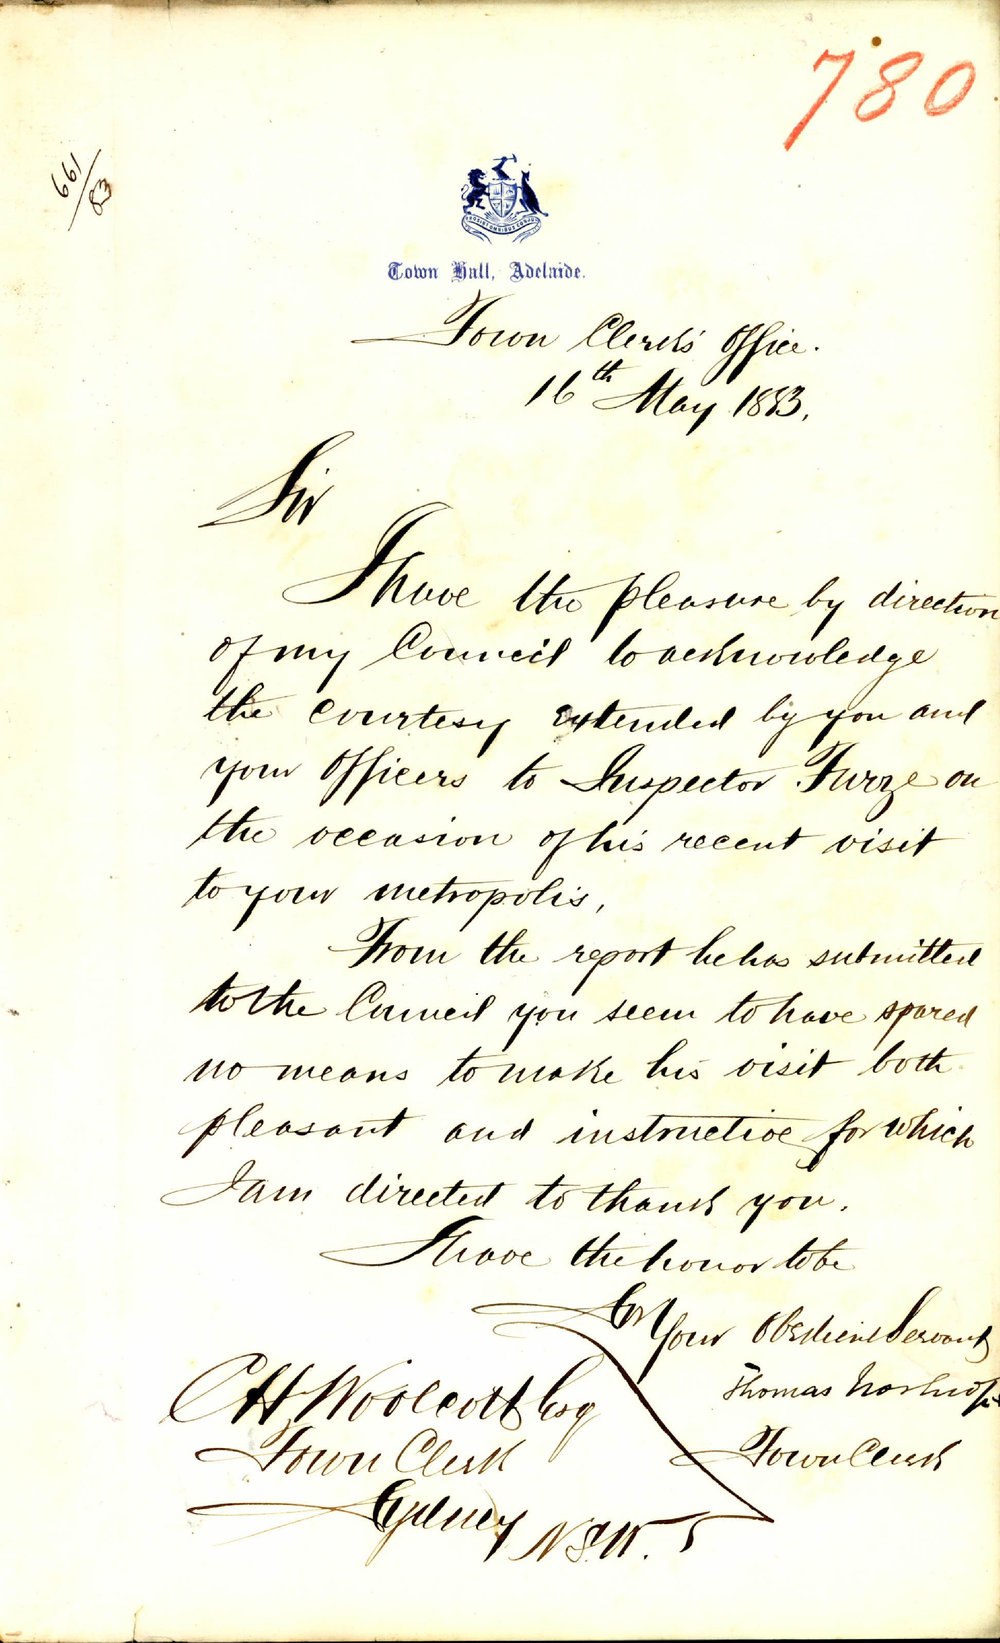 780
661/83
Town Hall, Adelaide.
Town Clerk's Office.
16th May 1883.
Sir
I have the pleasure by direction
of my Council to acknowledge
the courtesy extended by you and
your Officers to Inspector Furze on
the occasion of his recent visit
to your metropolis,
From the report he has submitted
to the Council you seem to have spared
no means to make his visit both
pleasant and instructive for which
I am directed to thank you.
I have the honor to be
Sir
Your Obedient Servant
Thomas Worsnop
Town Clerk
C H Woolcott Esq
Town Clerk
Sydney N.S.W.